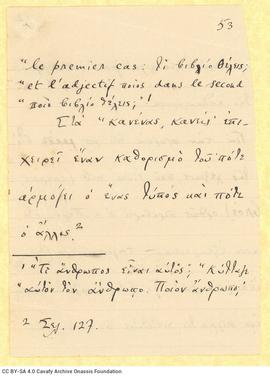 53
"le premier cas: τί βιβλίο θέλεις;
"et l'adjectif ποιός dans le second
"ποιό βιβλίο θέλεις;" ¹
Στά "κανένας, κανείς" ἐπι-
χειρεῖ ἕναν καθορισμό τοῦ πότε
ἁρμόζει ὁ ἕνας τύπος καί πότε
ὁ ἄλλος.²
1 "Τί ἄνθρωπος εἶναι αὐτός; "Κύτταξε
"αὐτόν τόν ἄνθρωπο. Ποιόν ἄνθρωπο;
2 Σελ. 127.
CC BY-SA 4.0 Cavafy Archive Onassis Foundation